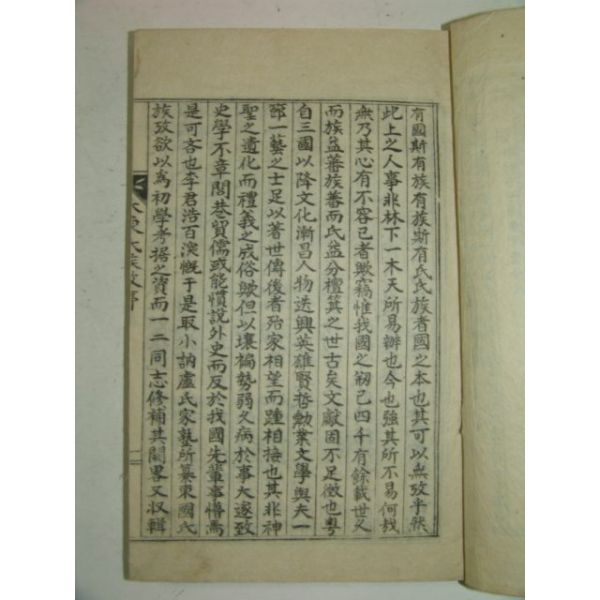 有國斯有族有族斯有氏氏族者國之本也其可以無攷乎然
此上之人事非林下一木天所易辦也今也強其所不易何哉
無乃其心有不容已者歟竊惟我國之刱已四千有餘載世久
而族益蕃族蕃而氏益分檀箕之世古矣文獻固不足徵也粤
自三國以降文化漸昌人物迭興英雄賢哲勳業文學與夫一
節一藝之士足以著世傳後者殆家相望而踵相接也其非神
聖之遺化而禮義之成俗歟但以壤褊勢弱久病於事大遂致
史學不章閭巷貿儒或能慣說外史而反於我國先輩事懵焉
是可吝也李君浩百深慨于是取小訥盧氏家塾所纂東國氏
族攷欲以爲初學考据之資而一二同志修補其闕畧又收輯
大東氏族攷序
一